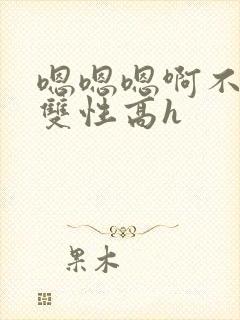 嗯嗯嗯啊不
雙性高h
果木